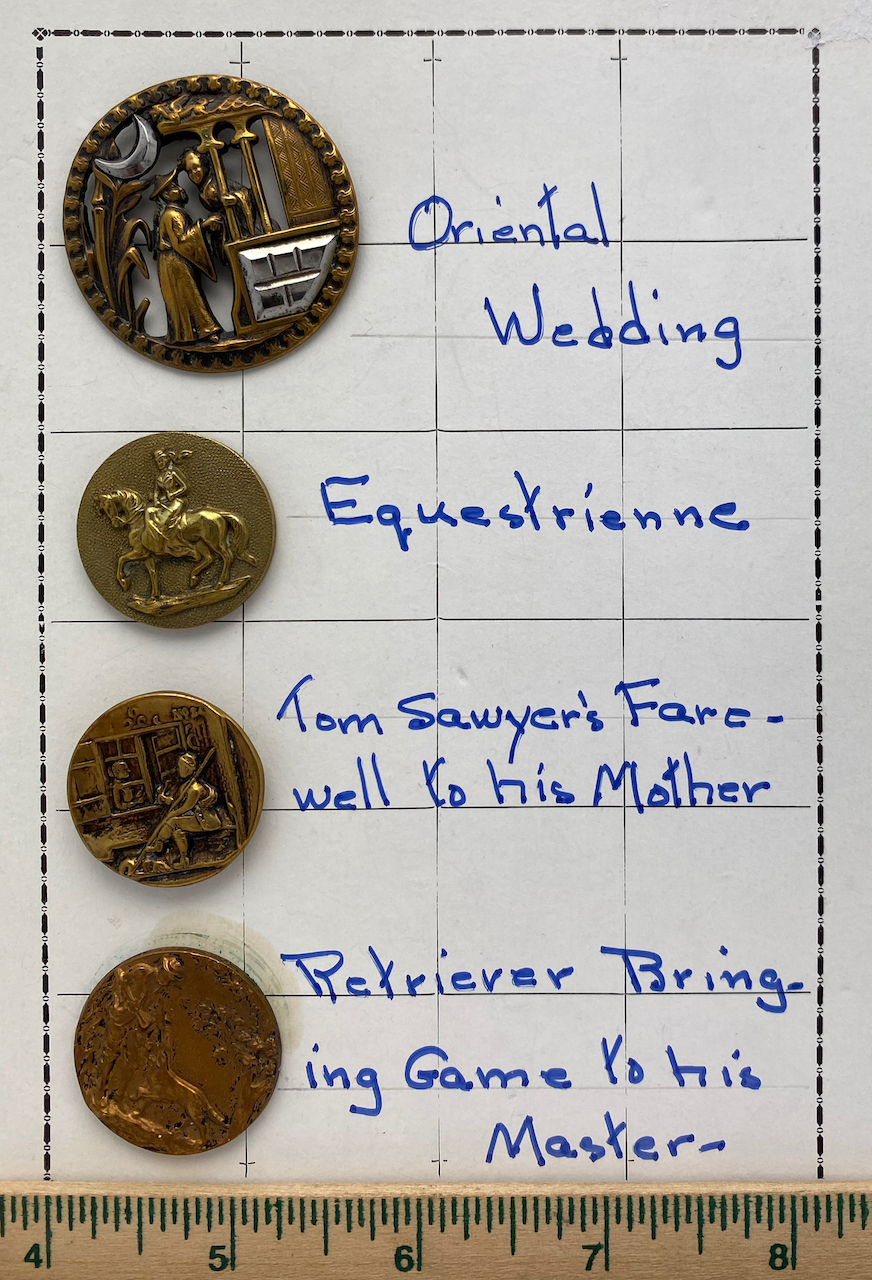 Oriental
Wedding
Equestrienne
Tom Sawyer's Fare-
well to his Mother
Retriever Bring-
ing Game to his
Master-
4 5 6 7 8